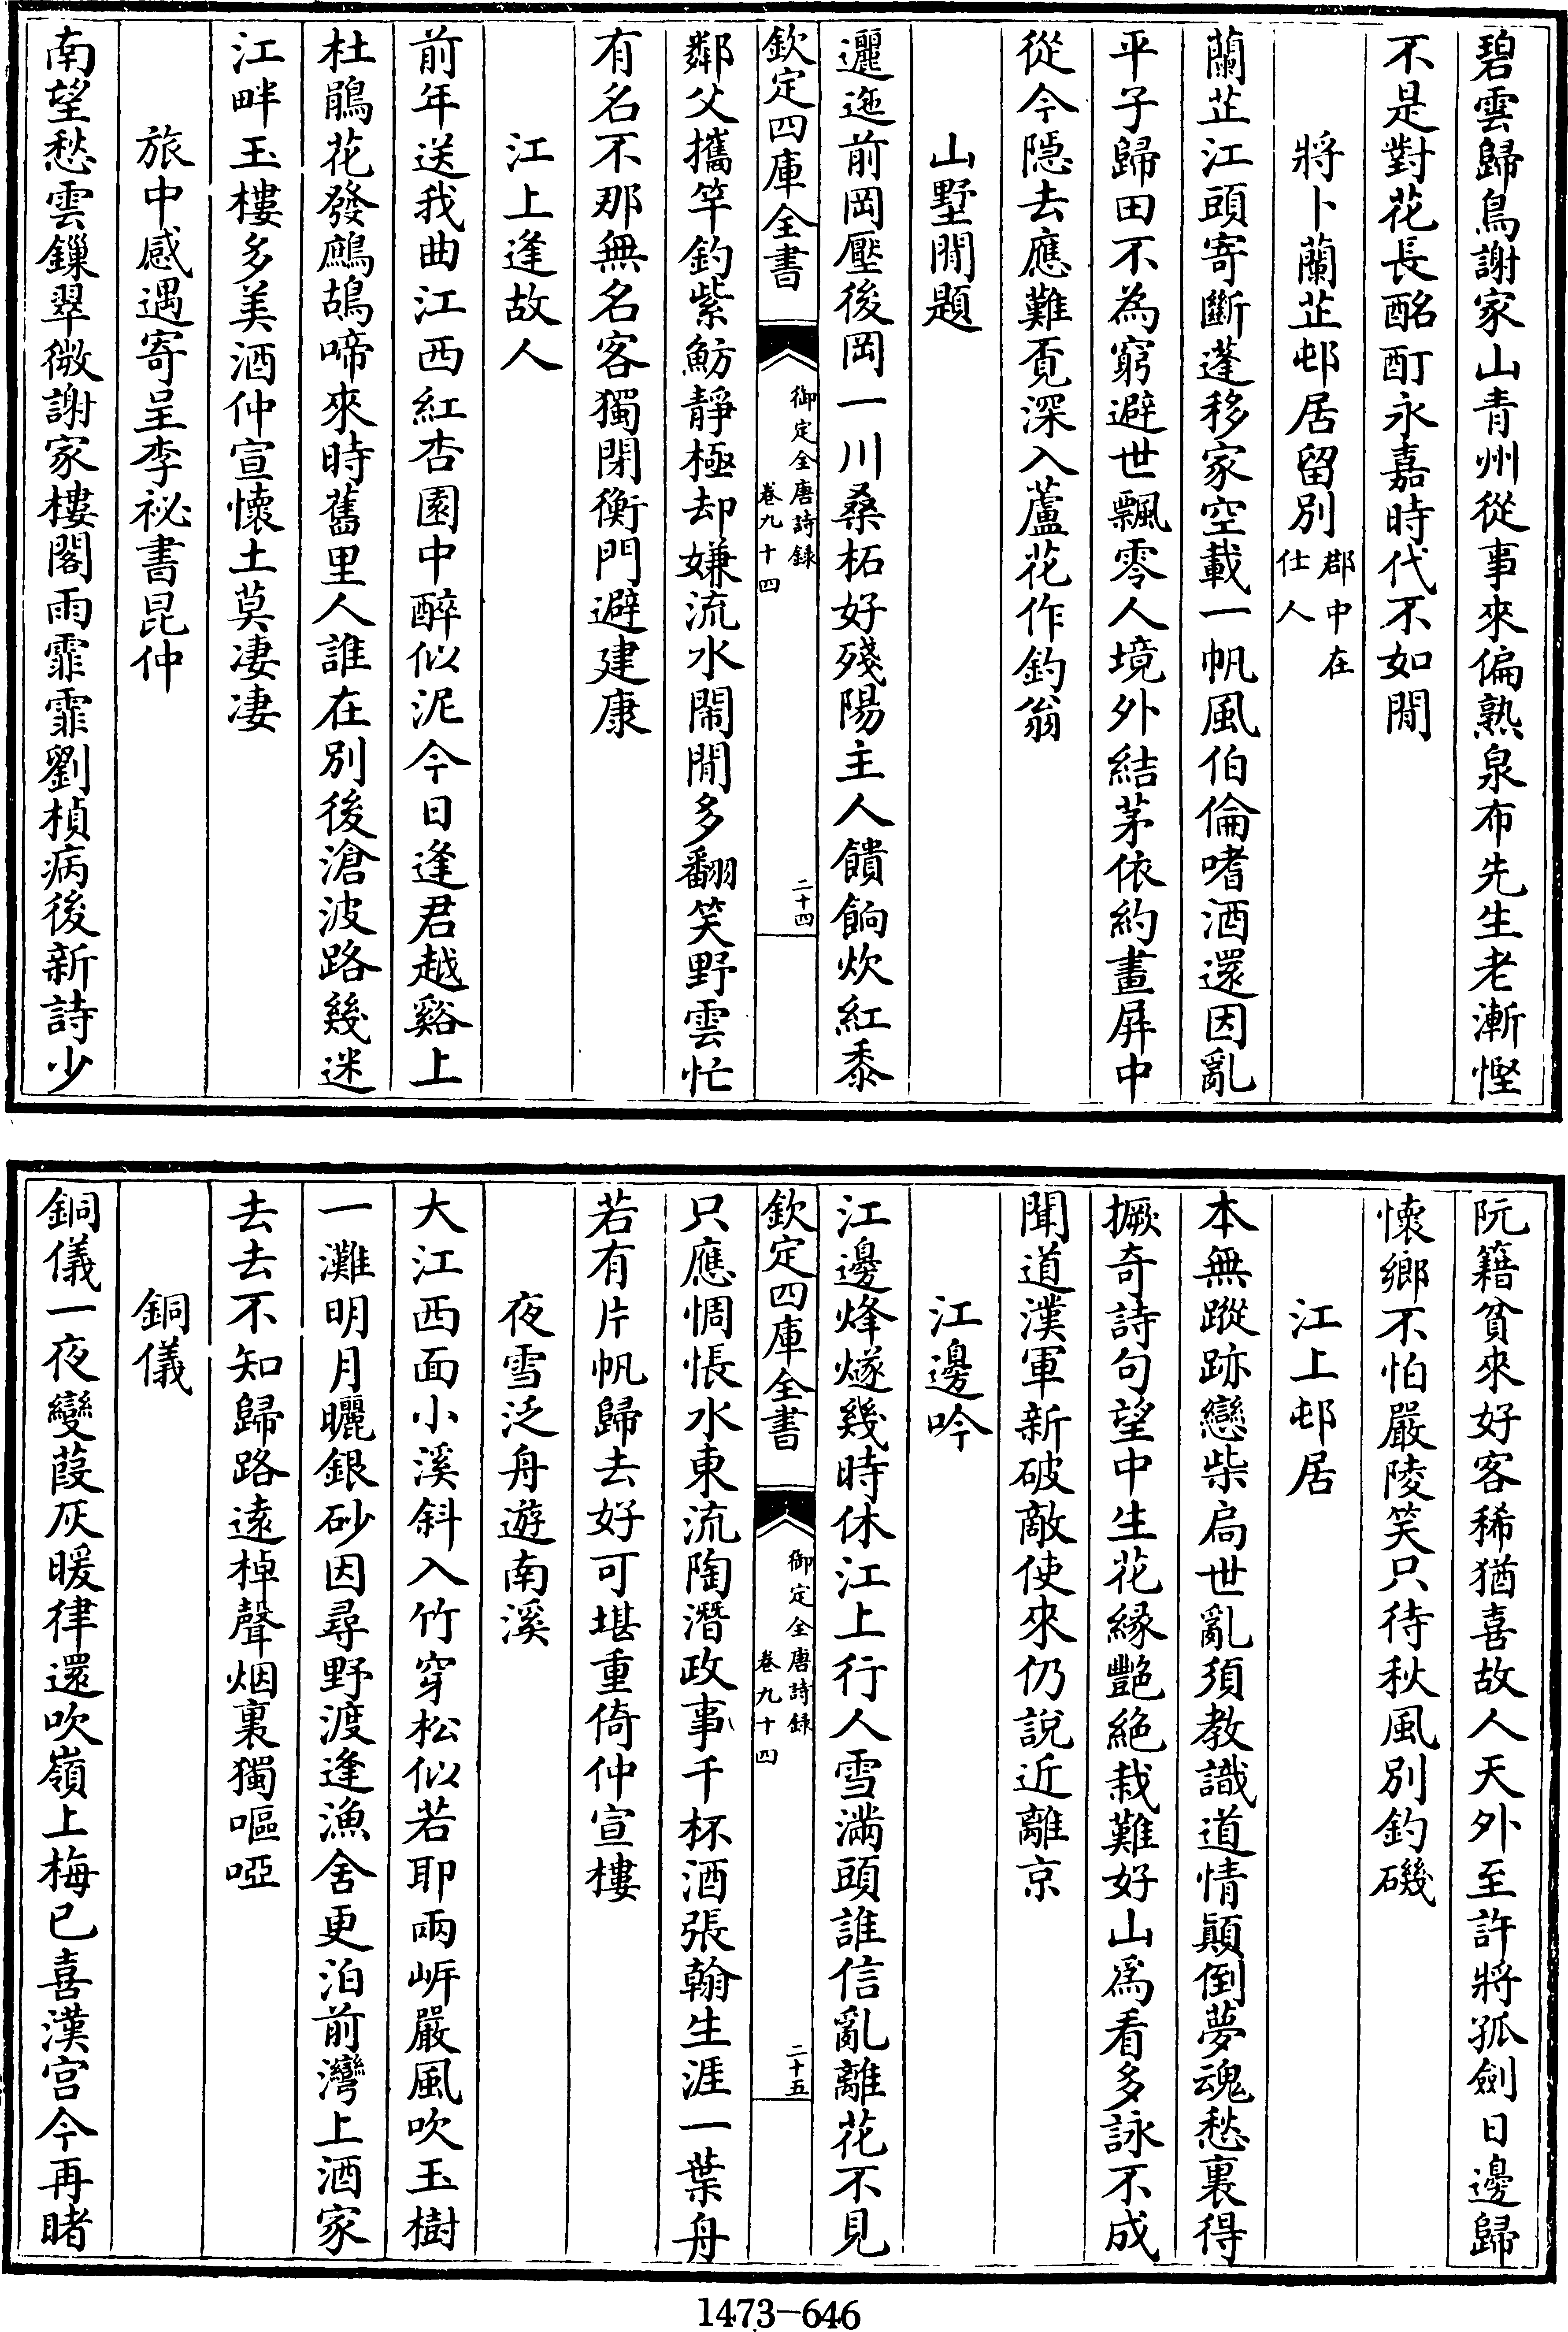 碧雲歸鳥謝家山青州從事來偏熟泉布先生老漸慳
不是對花長酩酊永嘉時代不如閒
將卜蘭芷邨居留別郡中在仕人
蘭芷江頭寄斷蓬移家空載一帆風伯倫嗜酒還因亂
平子歸田不為窮避世飄零人境外結茅依約畫屏中
從今隱去應難覔深入蘆花作釣翁
山墅閒題
邐迤前岡壓後岡一川桑柘好殘陽主人饋餉炊紅黍
欽定四庫全書
御定全唐詩録
卷九十四
二十四
鄰父攜竿釣紫魴靜極却嫌流水鬧閒多翻笑野雲忙
有名不那無名客獨閉衡門避建康
江上逢故人
前年送我曲江西紅杏園中醉似泥今日逢君越谿上
杜鵑花發鷓鴣啼來時舊里人誰在別後滄波路幾迷
江畔玉樓多美酒仲宣懷土莫淒淒
旅中感遇寄呈李祕書昆仲
南望愁雲鏁翠微謝家樓閣雨霏霏劉楨病後新詩少
阮籍貧來好客稀猶喜故人天外至許將孤劍日邊歸
懷鄉不怕嚴陵笑只待秋風別釣磯
江上邨居
本無蹤跡戀柴扃世亂須教識道情顛倒夢魂愁裏得
撅奇詩句望中生花緣艷絶栽難好山爲看多詠不成
聞道漢軍新破敵使來仍說近離京
江邊吟
江邊烽燧幾時休江上行人雪滿頭誰信亂離花不見
欽定四庫全書
御定全唐詩録
卷九十四
二十五
只應惆悵水東流陶潛政事千杯酒張翰生涯一葉舟
若有片帆歸去好可堪重倚仲宣樓
夜雪泛舟遊南溪
大江西面小溪斜入竹穿松似若耶兩岍嚴風吹玉樹
一灘明月曬銀砂因尋野渡逢漁舍更泊前灣上酒家
去去不知歸路遠棹聲烟裏獨嘔啞
銅儀
銅儀一夜變葭灰暖律還吹嶺上梅已喜漢宫今再睹
1473-646